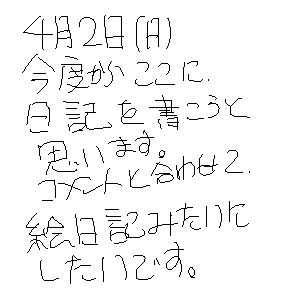 4月2日(月)
今度からここに、
日記を書こうと
思います。
コメントと合わせて、
絵日記みたいに
したいです。